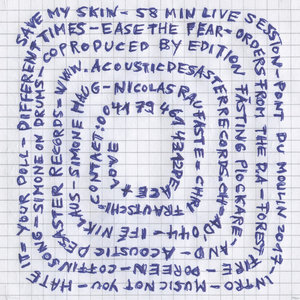 SAVE MY SKIN – 58 MIN LIVE SESSION –
PONT DU MOULIN 2017 – INTRO –
MUSIC NOT YOU – HATE
IT – YOUR DOLL – DIFFERENT
TIMES – EASE THE FEAR –
ORDERS FROM THE – FOREST FIRE –
DOREEN – COFFIN
SONG – SIMONE ON DRUMS –
COPRODUCED BY EDITION
FASTING PLOCKARE – AND
ACOUSTIC
DESASTER RECORDS –
WWW.ACOUSTICDESASTERRECORDS.CH –
AD 044 – IFE NIKLAUS – SIMONE HAUG – NICOLAS RAUFASTE –
TRAUTSCHI –
CONTACT: 004179
PEACE + LOVE